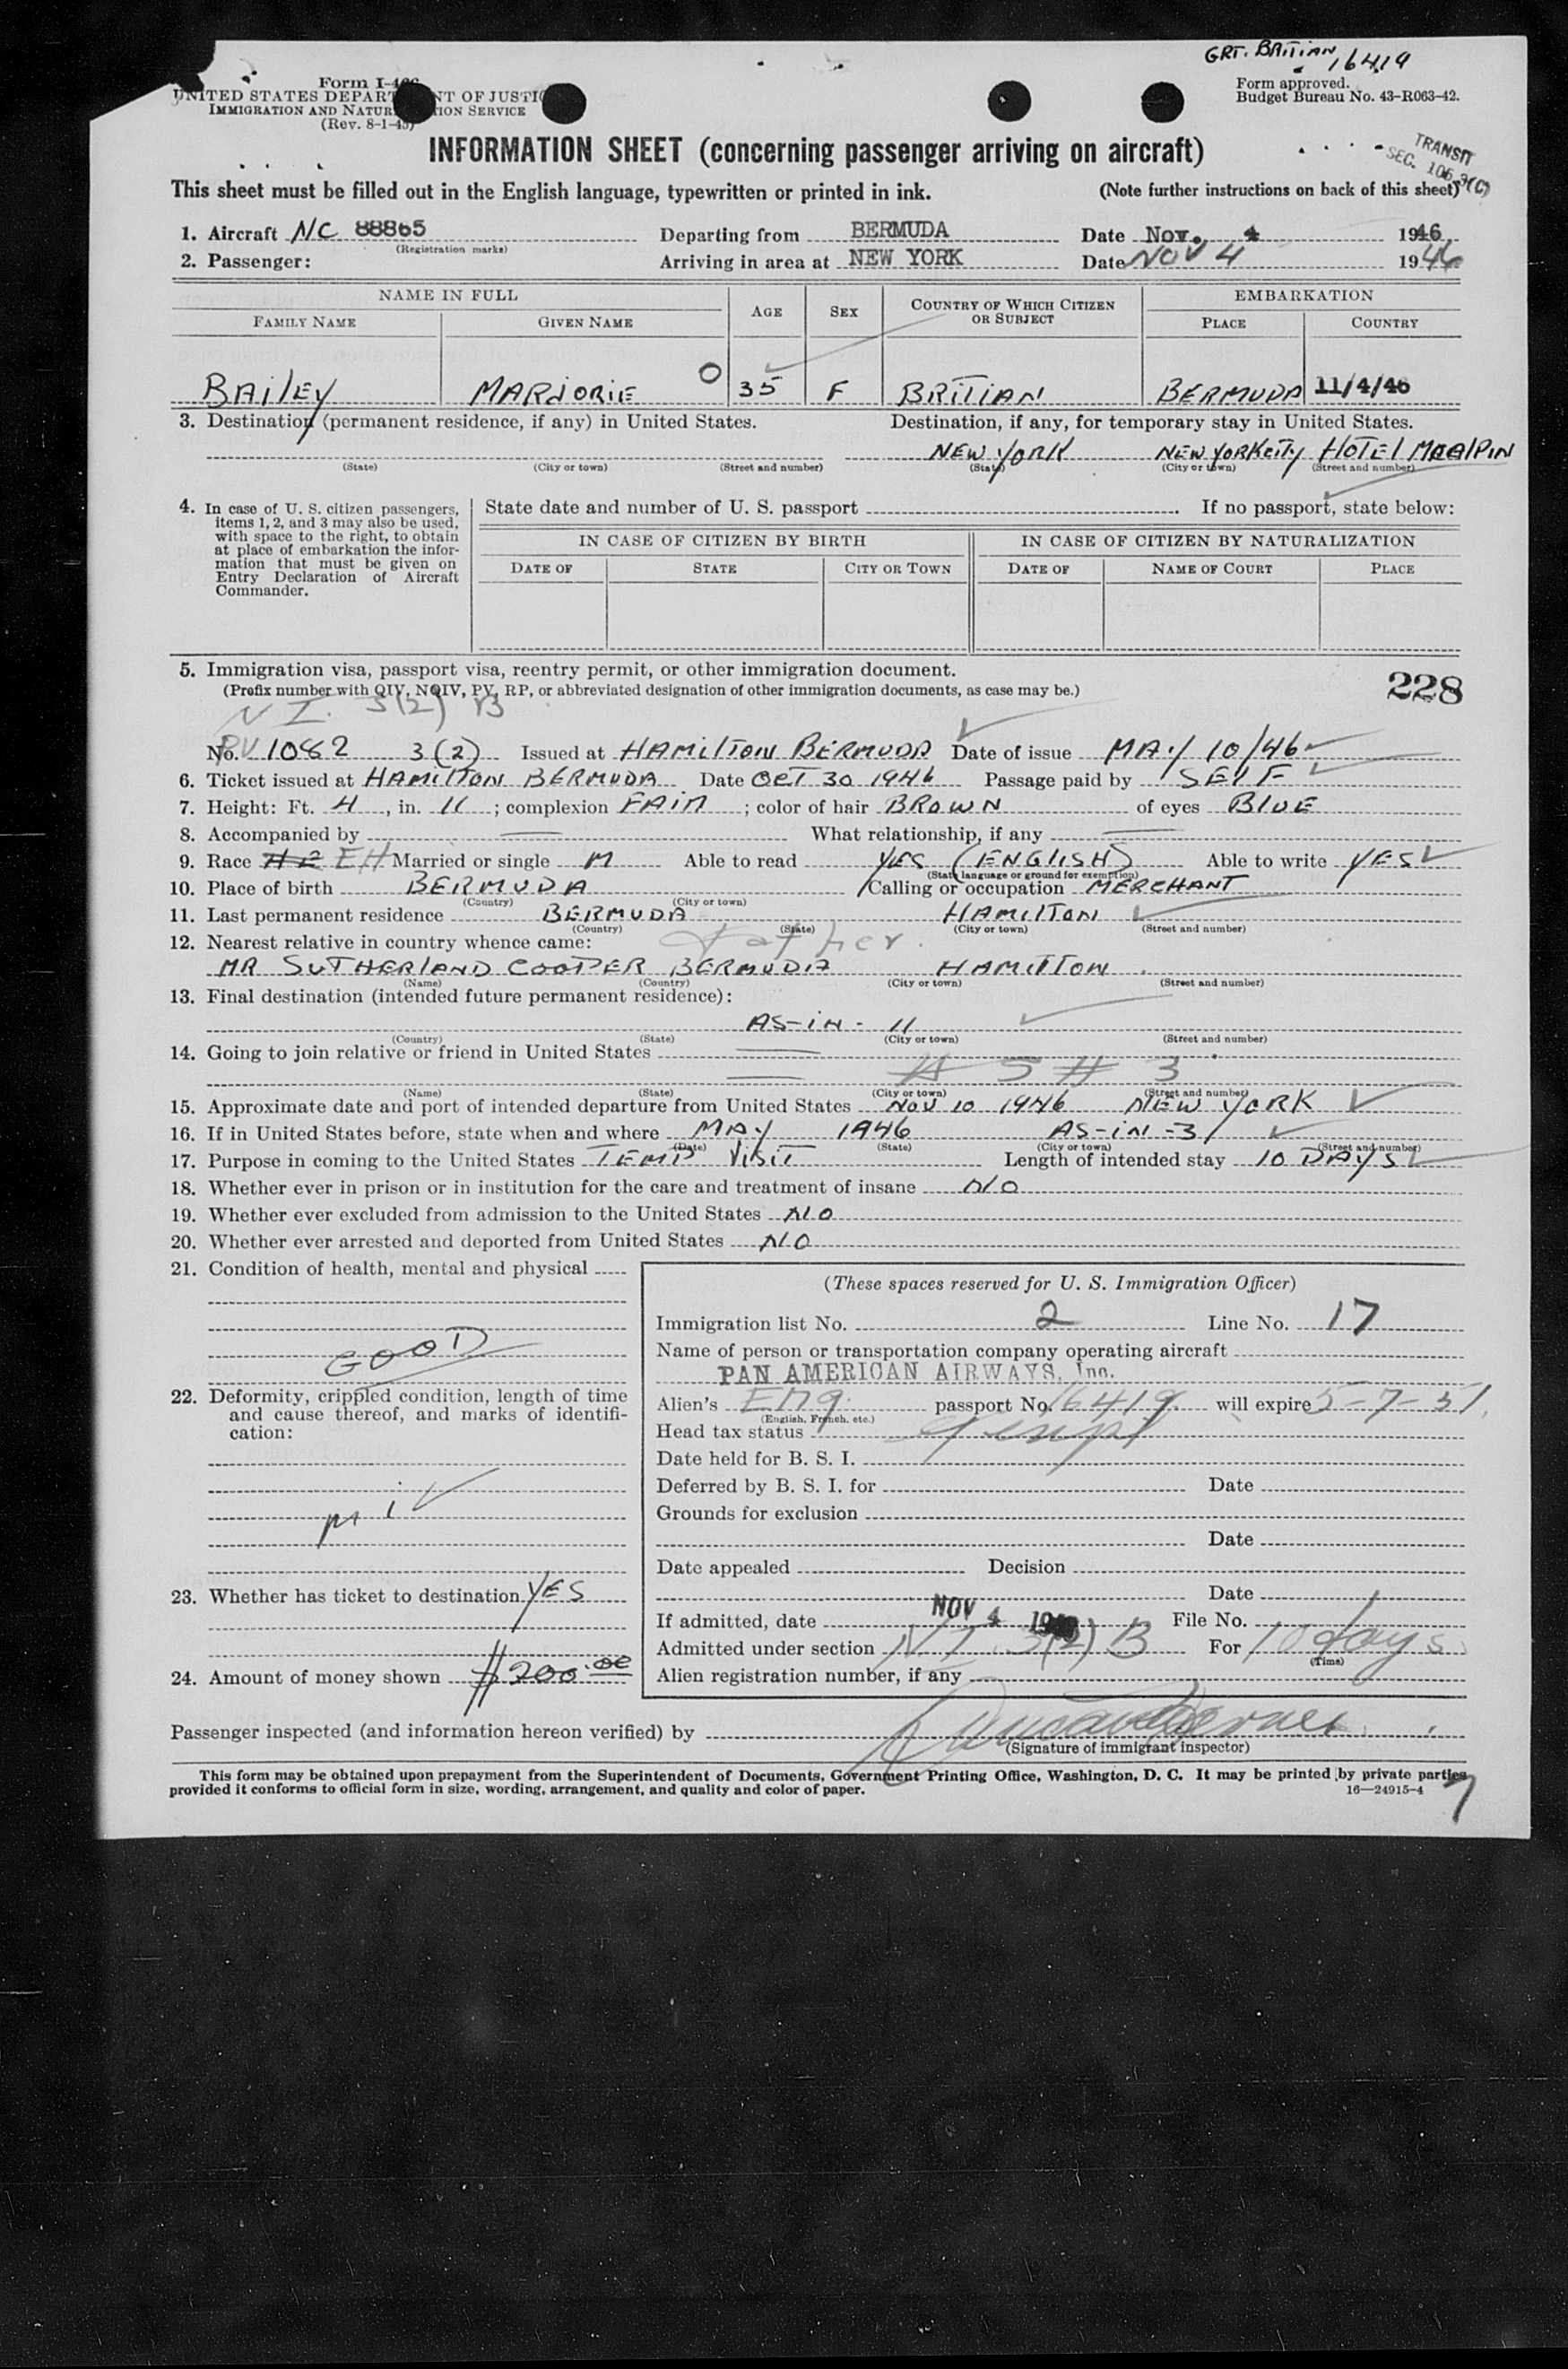 GRT. BRITIAN 16419
Form I-466
UNITED STATES DEPART NT OF JUSTIC
IMMIGRATION AND NATUR TION SERVICE
(Rev. 8-1-45)
Form approved.
Budget Bureau No. 43-R063-42.
INFORMATION SHEET (concerning passenger arriving on aircraft)
TRANSIT
SEC. 106.3(C)
This sheet must be filled out in the English language, typewritten or printed in ink. (Note further instructions on back of this sheet)
1. Aircraft NC 88865 Departing from BERMUDA Date Nov. 4 1946
(Registration marks)
2. Passenger: Arriving in area at NEW YORK Date NOV 4 1946
NAME IN FULL AGE SEX COUNTRY OF WHICH CITIZEN OR SUBJECT EMBARKATION
FAMILY NAME GIVEN NAME PLACE COUNTRY
BAILEY MARJORIE O 35 F BRITIAN BERMUDA 11/4/46
3. Destination (permanent residence, if any) in United States. Destination, if any, for temporary stay in United States.
NEW YORK NEW YORK CITY HOTEL McALPIN
(State) (City or town) (Street and number) (State) (City or town) (Street and number)
4. In case of U. S. citizen passengers, items 1, 2, and 3 may also be used, with space to the right, to obtain at place of embarkation the information that must be given on Entry Declaration of Aircraft Commander.
State date and number of U. S. passport If no passport, state below:
IN CASE OF CITIZEN BY BIRTH IN CASE OF CITIZEN BY NATURALIZATION
DATE OF STATE CITY OR TOWN DATE OF NAME OF COURT PLACE
5. Immigration visa, passport visa, reentry permit, or other immigration document.
(Prefix number with QIV, NQIV, PV, RP, or abbreviated designation of other immigration documents, as case may be.)
228
N I. 3(2) B
No. PV 1082 3(2) Issued at HAMILTON BERMUDA Date of issue MAY 10/46
6. Ticket issued at HAMILTON BERMUDA Date OCT 30 1946 Passage paid by SELF
7. Height: Ft. 4, in. 11; complexion FAIR; color of hair BROWN of eyes BLUE
8. Accompanied by — What relationship, if any —
9. Race EH Married or single M Able to read YES (ENGLISH) Able to write YES
(State language or ground for exemption)
10. Place of birth BERMUDA Calling or occupation MERCHANT
(Country) (City or town)
11. Last permanent residence BERMUDA HAMILTON
(Country) (State) (City or town) (Street and number)
12. Nearest relative in country whence came: Father.
MR SUTHERLAND COOPER BERMUDA HAMILTON
(Name) (Country) (City or town) (Street and number)
13. Final destination (intended future permanent residence):
AS-IN- 11
(Country) (State) (City or town) (Street and number)
14. Going to join relative or friend in United States —
— AS # 3
(Name) (State) (City or town) (Street and number)
15. Approximate date and port of intended departure from United States NOV 10 1946 NEW YORK
16. If in United States before, state when and where MAY 1946 AS-IN-3
(Date) (State) (City or town) (Street and number)
17. Purpose in coming to the United States TEMP VISIT Length of intended stay 10 DAYS
18. Whether ever in prison or in institution for the care and treatment of insane NO
19. Whether ever excluded from admission to the United States NO
20. Whether ever arrested and deported from United States NO
21. Condition of health, mental and physical
GOOD
22. Deformity, crippled condition, length of time and cause thereof, and marks of identification:
23. Whether has ticket to destination YES
24. Amount of money shown $200.00
(These spaces reserved for U. S. Immigration Officer)
Immigration list No. 2 Line No. 17
Name of person or transportation company operating aircraft
PAN AMERICAN AIRWAYS, Inc.
Alien's Eng. passport No. 16419 will expire 5-7-51.
(English, French, etc.)
Head tax status
Date held for B. S. I.
Deferred by B. S. I. for Date
Grounds for exclusion
Date
Date appealed Decision
Date
If admitted, date NOV 4 File No.
Admitted under section N I 3(2) B For 10 days
(Time)
Alien registration number, if any
Passenger inspected (and information hereon verified) by
(Signature of immigrant inspector)
This form may be obtained upon prepayment from the Superintendent of Documents, Government Printing Office, Washington, D. C. It may be printed by private parties
provided it conforms to official form in size, wording, arrangement, and quality and color of paper. 16—24915-4
7